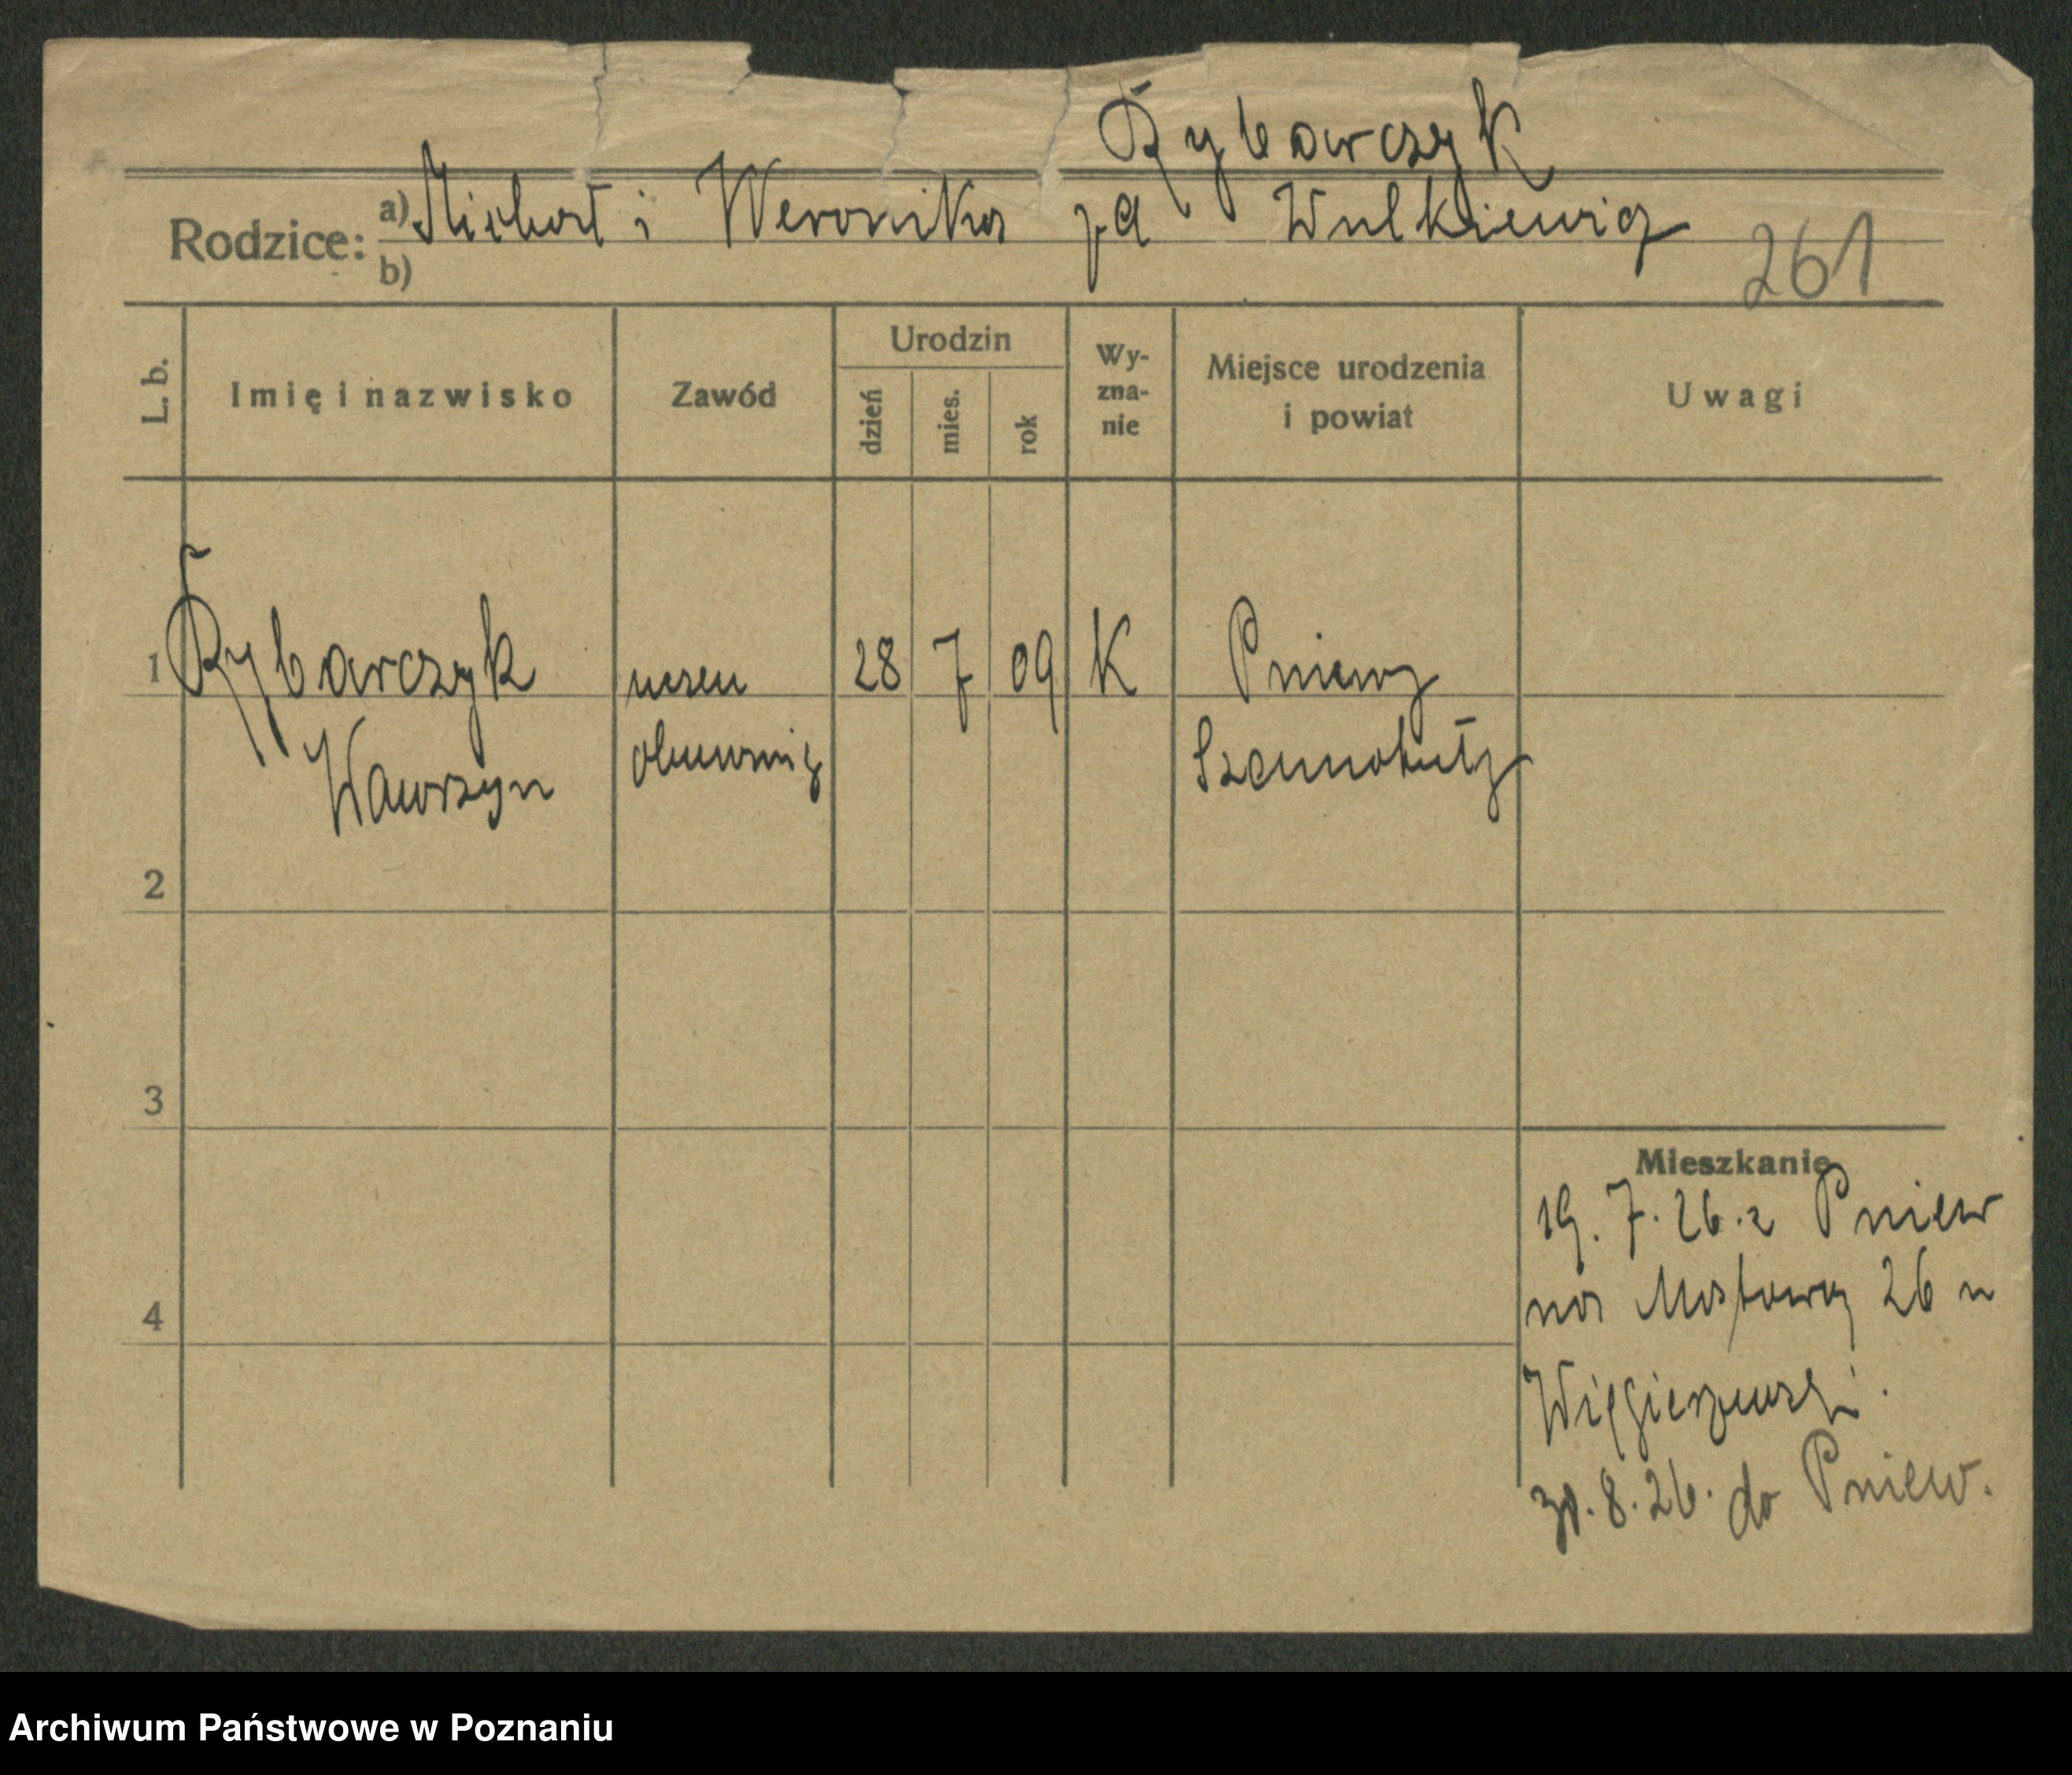 Rybarczyk
Rodzice: a) Michał i Weronika Wulkiewicz
b)
261
L. b. Imię i nazwisko Zawód Urodzin dzień mies. rok Wy-zna-nie Miejsce urodzenia i powiat Uwagi
1 Rybarczyk uczeń 28 7 09 K Pniewy
Wawrzyn Szamotuły
2
3
Mieszkanie
19. 7. 26. z Pniew
na Mostowa 26 u
4
30. 8. 26. do Pniew.
Archiwum Państwowe w Poznaniu